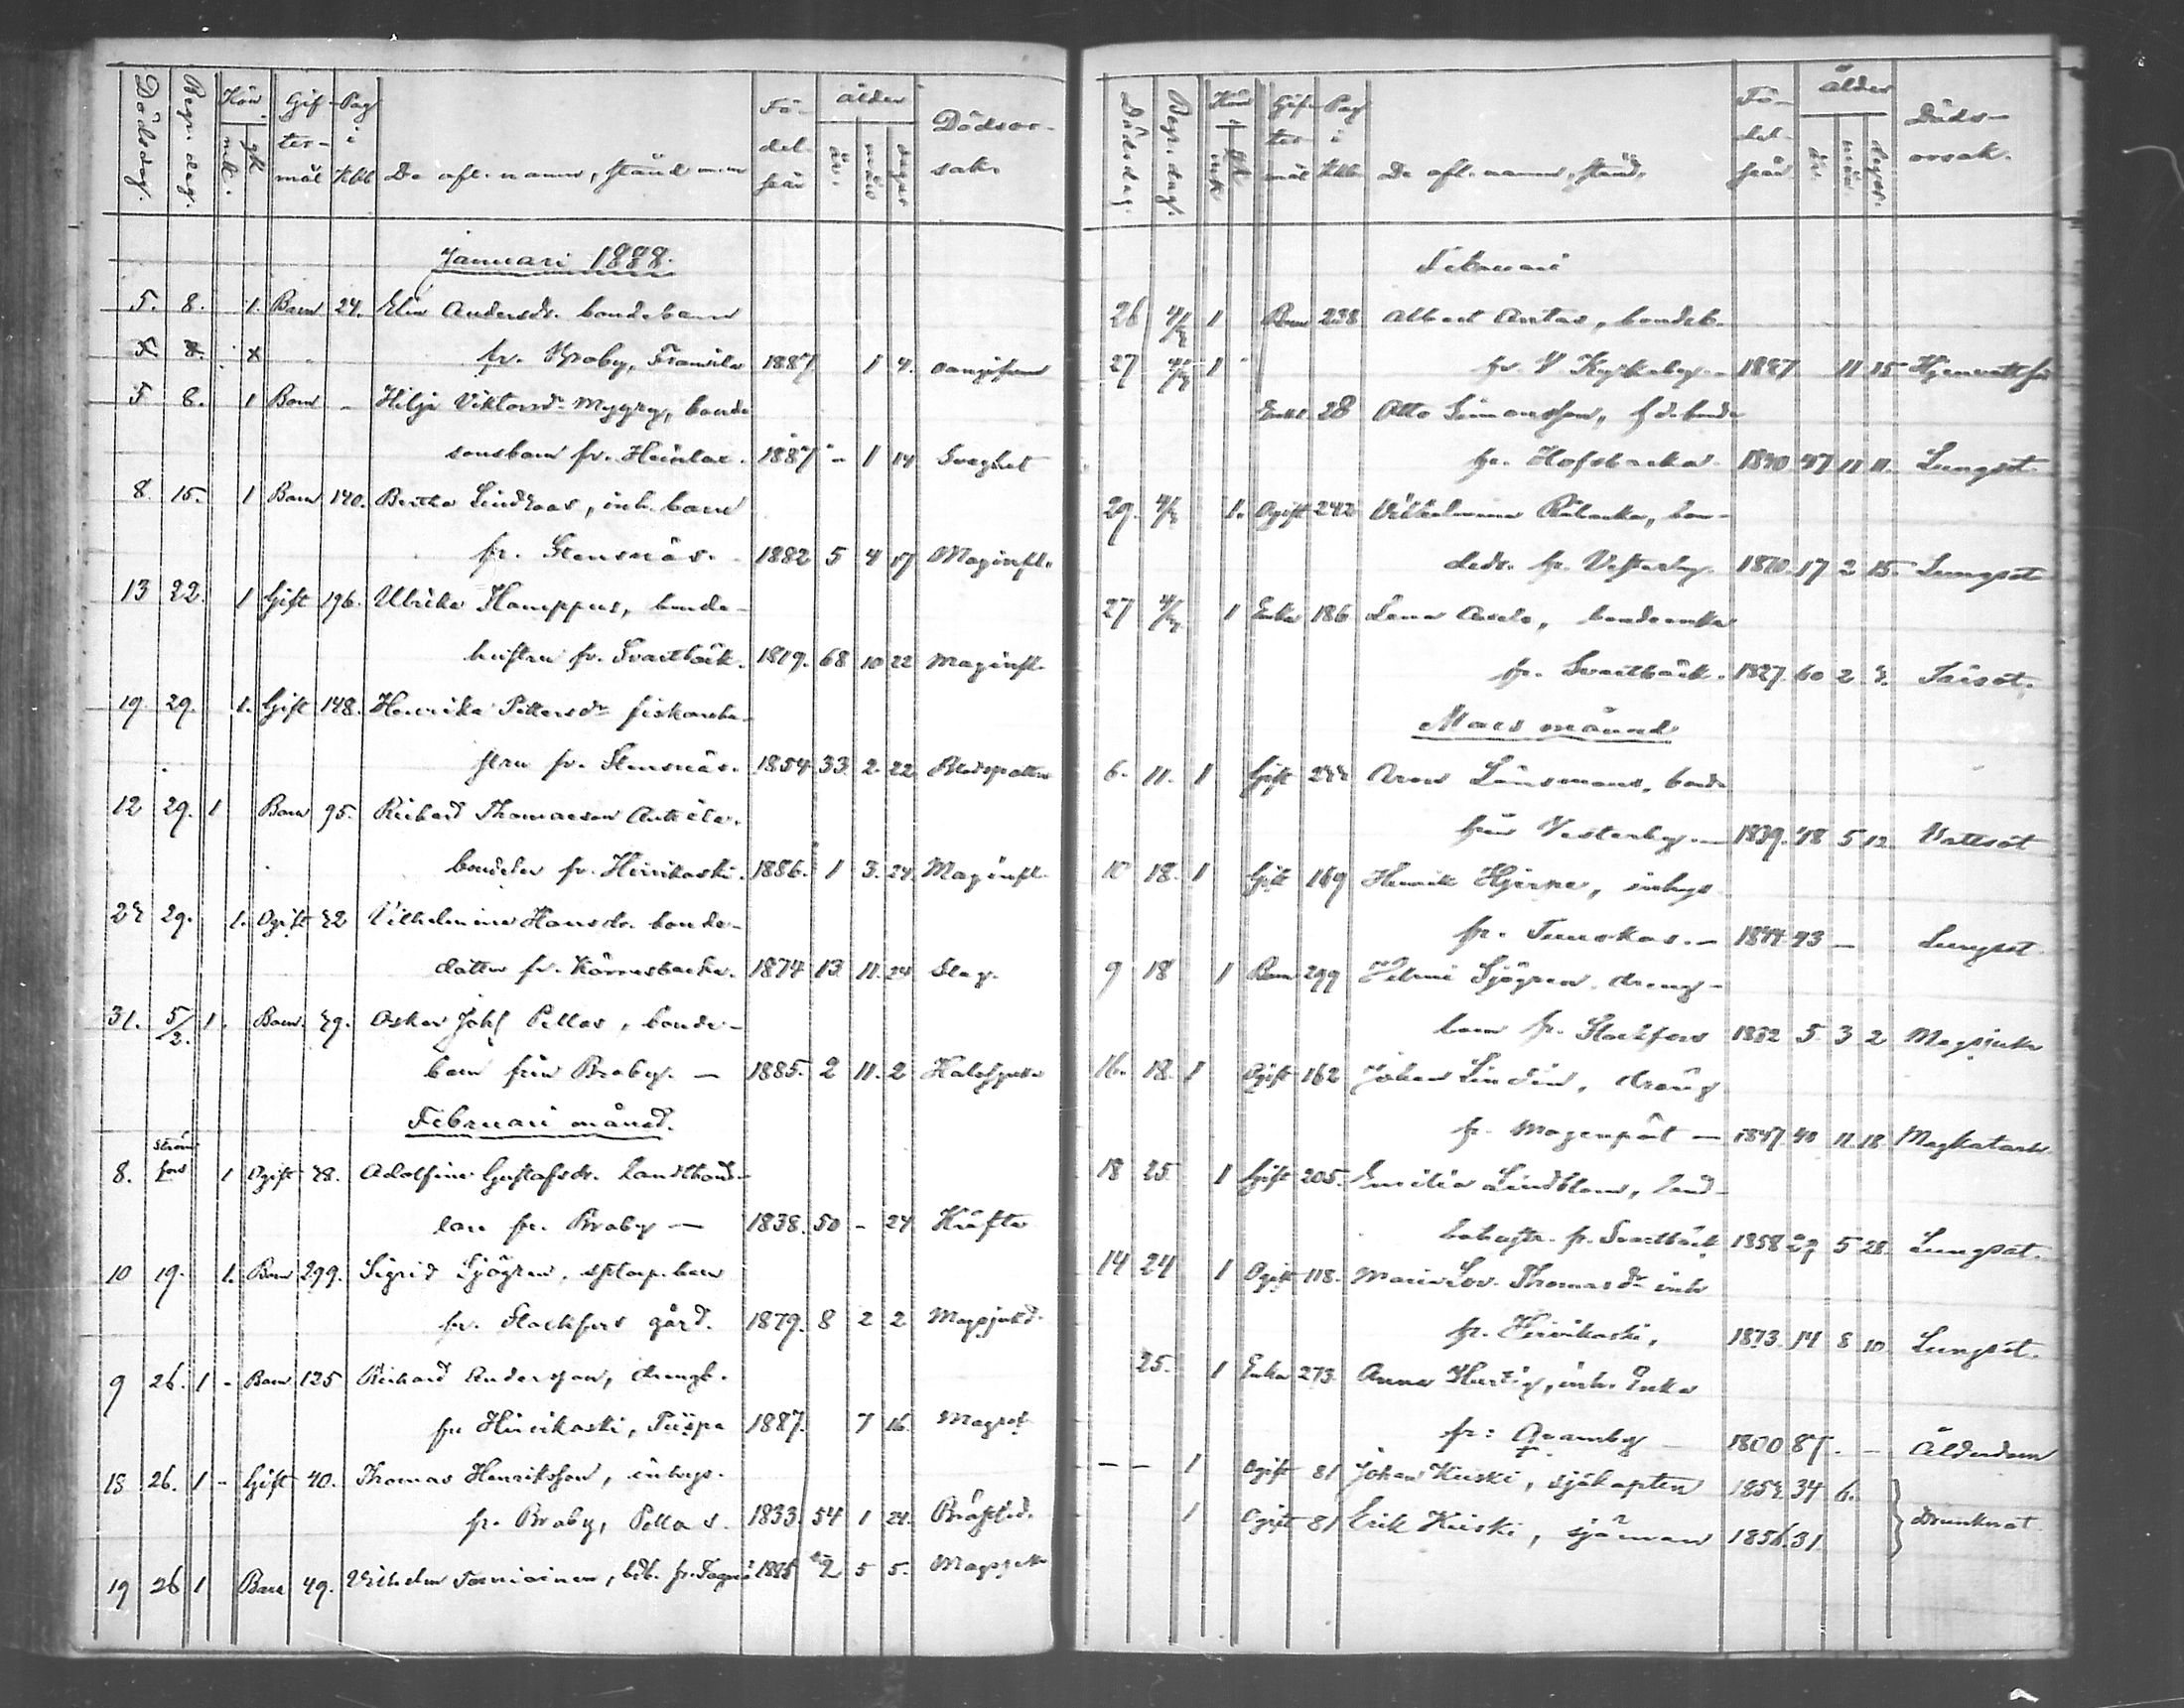 Dödsdag. Begr. dag. Kön mk. qk. Gif- ter- mål Pag i Kbb De afl. namn, stånd m.m Fö- del- seår ålder år. mån dagar Dödsor- sak.
Januari 1888.
5. 8. 1. Barn 24. Elin Andersdr. bondebarn
fr. Broby, Fransila 1887 1 4. oangifven
5 8. 1 Barn - Hilja Viktorsdr Myyry, bonde
sonsbarn fr. 1887 - 1 14 Svaghet
8. 15. 1 Barn 140. Bertha Lindroos, inh. barn
fr. Stensnäs. 1882 5 4 17 Maginfl.
13 22. 1 Gift 196. Ulrika Hamppus, bonde-
hustru fr. Svartbäck. 1819. 68 10 22 Maginfl.
19 29. 1. Gift 148. Henrika Pettersdr fiskarehu-
stru fr. Stensnäs. 1854 33 2. 22
12 29. 1 Barn 95. Richard Thomasson Anttila.
bondeb fr. Hirvikoski. 1886. 1 3. 24. Maginfl.
29. 1. Ogift Vilhelmina Hansdr. bonde-
dotter fr. 1874 13 11. 24 Slag.
31. 5/2. 1. Barn. Oskar Joh Pellas, bonde-
barn från Broby. — 1885. 2 11. 2 Halssjuka
Februari månad.
8. Ström fors 1 Ogift 28. Adolfina Gustafsdr. landthand-
lare fr. Broby — 1838. 50 - 24 Kräfta
10 19. 1. Barn 299. Sigrid Sjögren, barn
fr. Stockfors gård. 1879. 8 2 2 Magsjukd.
9 26. 1 - Barn 125 Richard Andersson, drengb.
fr Hirvikoski, 1887. 7 16
18 26. 1 - Gift 40. Thomas Henriksson, inhys.
fr. Broby, Pellas. 1833. 54 1 24. Bröstlid.
19 26 1 Barn 49. Vilhelm Torniainen, bdb. fr. 1885 2 5 5. Magsjuk
Dödsdag. Begr. dag. Kön mk qk Gif- ter- mål Pag i Kbb. De afl. namn, stånd. Fö- del- seår ålder år mån dagar. Döds- orsak.
Februari
26 4/3 1 Barn 238 Albert Anttas, bondeb.
27 4/3 1 fr. V Kyrkoby. 1887. 11 15
Enkl. 28 Otto Simonsson, f d. bonde
fr. Hofsbacka. 1840 47 11 11. Lungsot.
29. 4/3 1. Ogift 242 Vilhelmina Råbacka, bon-
dedr. fr. Vesterby. 1870. 17 2 15. Lungsot
27 4/3 1 Enka 186 Lena Axelo, bondeenka
fr. Svartbäck. 1827. 60 2 Tärsot.
Mars månad
6. 11. 1 Gift Länsmans, bonde
från Vesterby. — 1839. 48 5 12 Vattsot
10 18. 1 Gift 169 Henrik Hjerpe, inhys
fr. Tuuskas. — 1844 43 — Lungsot.
9 18 1 Barn 299 Helmi Sjögren, dreng-
barn fr. Stockfors 1882 5 3 2 Magsjuka
16. 18. 1 Ogift 162 Johan Lindén, dräng
fr. Mogenpört — 1847. 40 11. 18. Magkatarh
18 25. 1 Gift 205. Emilia Lindblom, land-
bohustr. fr. Svartbäck 1858 29 5 28. Lungsot.
14 24 1 Ogift 118. Maria Lov. Thomasdr inh
fr. Hirvikoski, 1873. 14 8 10 Lungsot.
25. 1 Enka 273. Anna Hurtig, inh. Enka
fr: 1800 87. - Ålderdom
- - 1 Ogift 81 Johan Kuski, sjökapten 34 6.
1 Ogift 81 Erik Kuski, sjöman 1856. 31. drunknat.